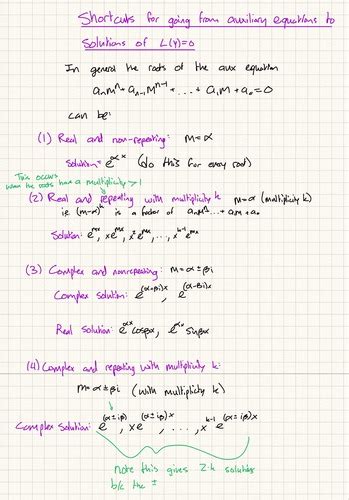 Shortcuts for going from auxiliary equations to
solutions of L(y)=0
In general the roots of the aux equation
aₙmⁿ + aₙ₋₁mⁿ⁻¹ + ... + a₁m + a₀ = 0
can be:
(1) Real and non-repeating: m=α
Solution: e^{αx} (do this for every root)
This occurs
when the roots have a multiplicity > 1
(2) Real and repeating with multiplicity k m=α (multiplicity k)
ie (m-α)^k is a factor of aₙmⁿ...+ a₁m + a₀
Solution: e^{mx}, xe^{mx}, x²e^{mx}, ..., x^{k-1}e^{mx}
(3) Complex and nonrepeating: m=α±βi
Complex solution: e^{(α+βi)x}, e^{(α-βi)x}
Real solution: e^{αx}cosβx, e^{αx}sinβx
(4) Complex and repeating with multiplicity k:
m=α±βi (with multiplicity k)
Complex solution: e^{(α±iβ)x}, xe^{(α±iβ)x}, ..., x^{k-1}e^{(α±iβ)x}
note this gives 2·k solutions
b/c the ±